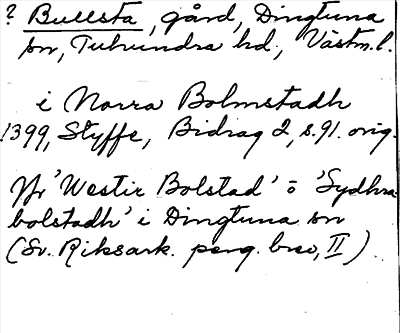 ? Bullsta, gård, Dingtuna
sn, Tuhundra hd., Västm.l.
i Norra Bolmstadh
1399, Styffe, Bidrag 2, s.91. orig.
Jfr 'Westir Bolstad' o 'Sydhra
bolstadh' i Dingtuna sn
(Sv. Riksark. perg. brev, II)